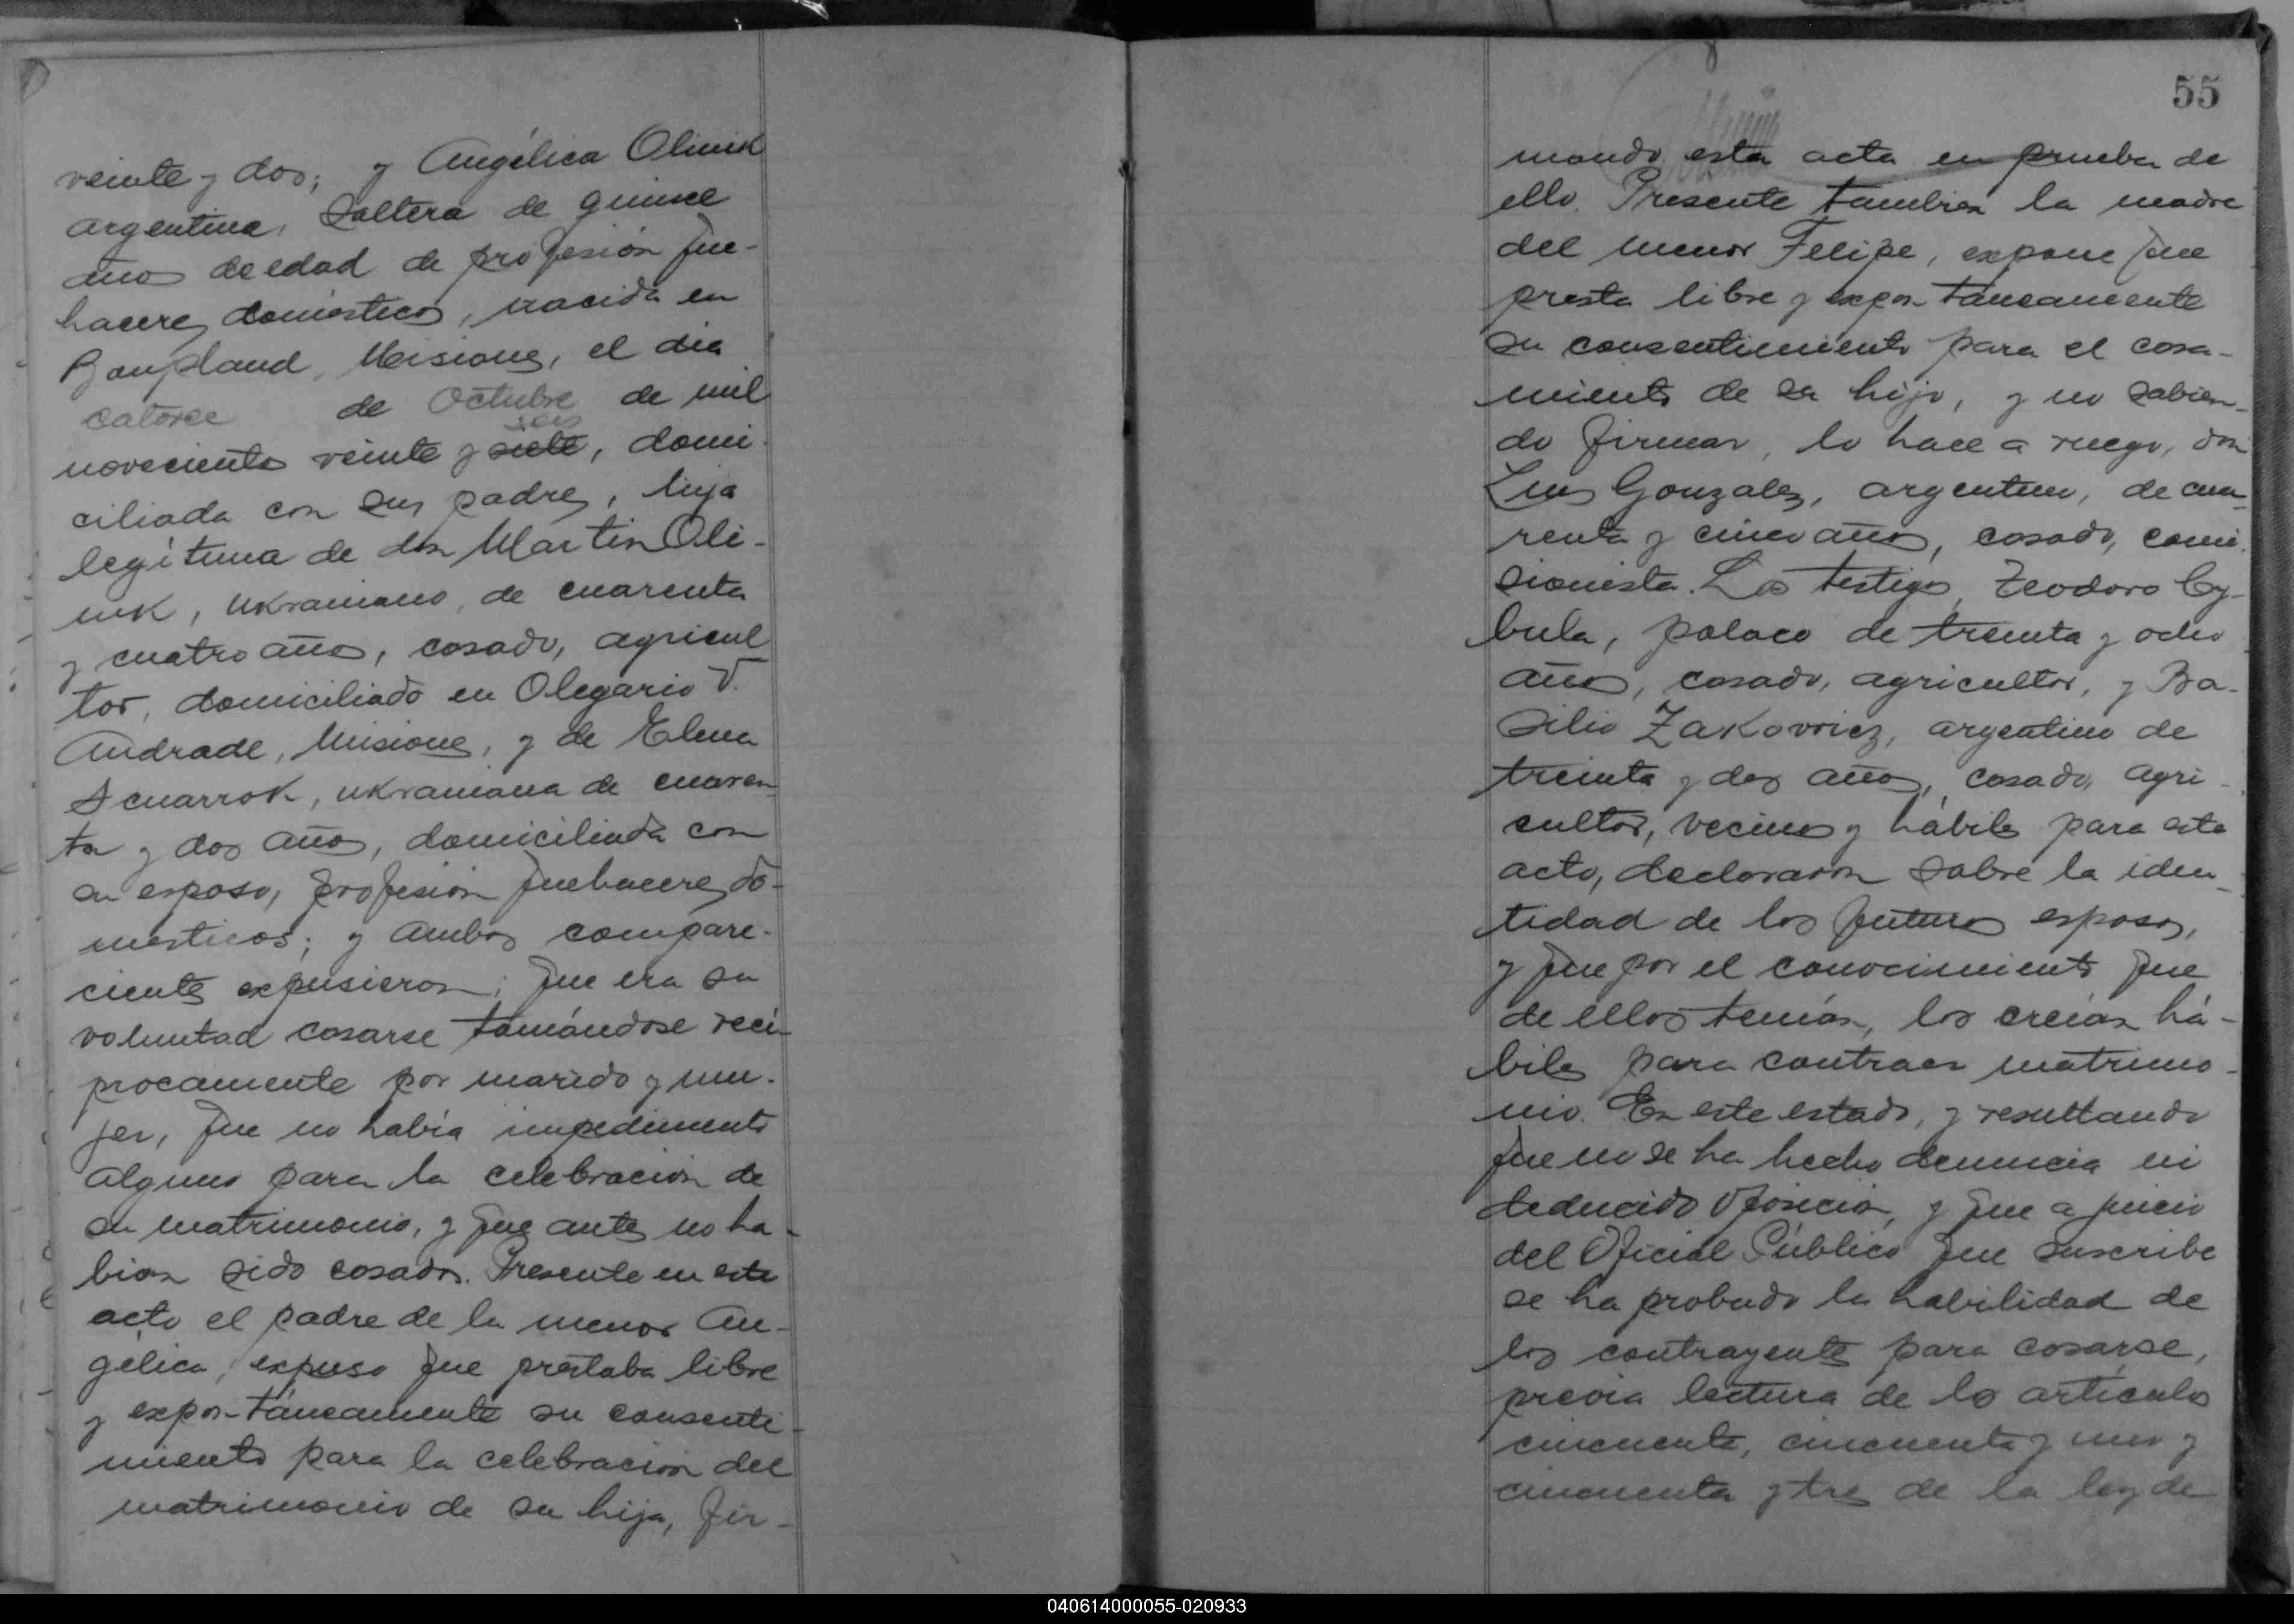 veinte y dos; y Angélica Olinik
argentina, Soltera de quince
años de edad de profesión que-
haceres domésticos, nacida en
Bonpland, Misiones, el día
catorce de Octubre de mil
seis
novecientos veinte y siete, domi
ciliada con sus padres, hija
legítima de don Martin Oli-
nik, Ukraniano, de cuarenta
y cuatro años, casado, agricul
tor, domiciliado en Olegario V.
Andrade, Misiones, y de Elena
ukraniana de cuaren
ta y dos años, domiciliada con
su esposo, profesión quehaceres do-
mesticos; y ambos compare-
cientes expusieron; que era su
voluntad casarse tomándose reci-
procamente por marido y mu-
jer, que no había impedimento
alguno para la celebración de
su matrimonio, y que antes no ha-
bían sido casados. Presente en este
acto el padre de la menor An-
gélica, expuso que prestaba libre
y expon-táneamente su consenti-
miento para la celebración del
matrimonio de su hija, fir-
55
mando esta acta en prueba de
ello. Presente tambien la madre
del menor Felipe, expone que
presta libre y expon-táneamente
su consentimiento para el casa-
miento de su hijo, y no sabien-
do firmar, lo hace a ruego, don
Luis Gonzalez, argentino, de cua-
renta y cinco años, casado, comi-
sionista. Los testigos, Teodoro Cy-
bula, polaco de treinta y ocho
años, casado, agricultor, y Ba-
silio Zakovricz, argentino de
treinta y dos años, casado, agri-
cultor, vecinos y hábiles para este
acto, declararon sobre la iden-
tidad de los futuros esposos,
y que por el conocimiento que
de ellos tenían, los creían há-
biles para contraer matrimo-
nio. En este estado, y resultando
que no se ha hecho denuncia ni
deducido oposición, y que a juicio
del Oficial Público que suscribe
se ha probado la habilidad de
los contrayentes para casarse,
previa lectura de los artículos
cincuenta, cincuenta y uno y
cincuenta y tres de la ley de
040614000055-020933